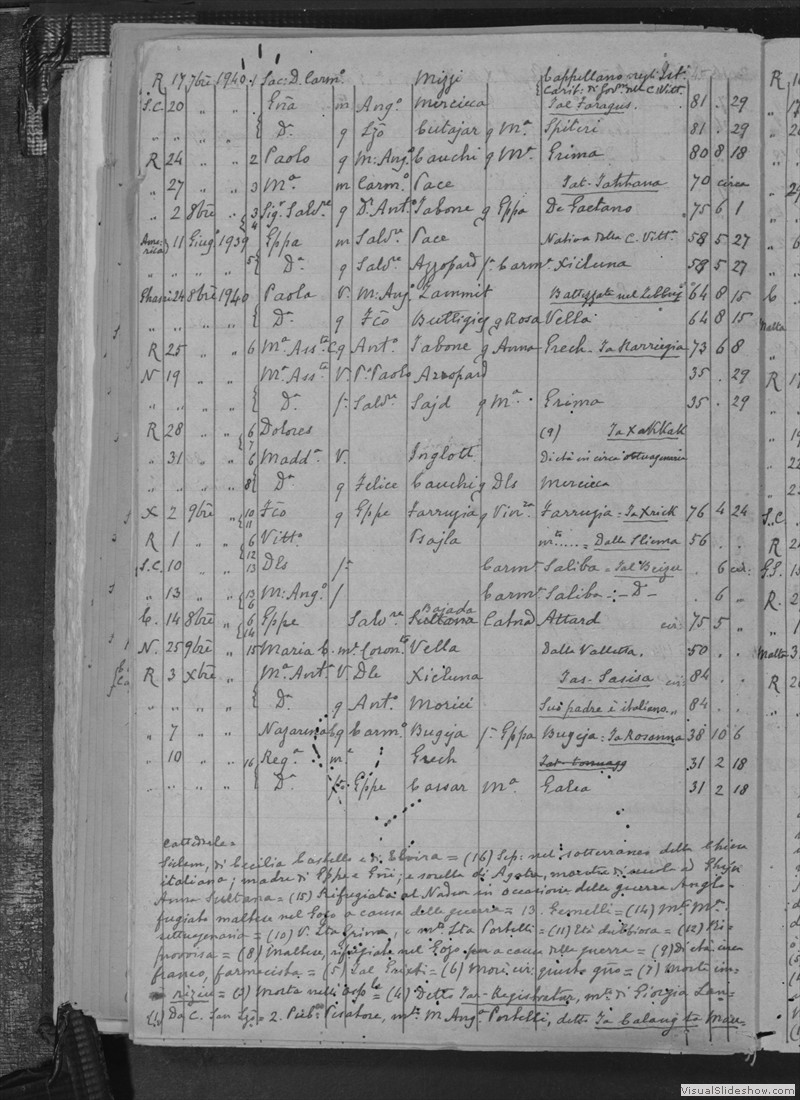 R 17 7bre 1940 1 Sac: D. Carmo. Mizzi Cappellano negli Ist.
Carit: di Govno. nel C. Vitt.
S.C. 20 " " Enã m Ango Mercieca Tal Faragus. 81 . 29
" " " " Da. g Lzo Cutajar g Ma. Spiteri 81 . 29
R 24 " " 2 Paolo g M: Ango Cauchi g Ma. Grima 80 8 18
" 27 " " 3 Ma. m Carmo. Pace Tat-Tahhana 70 circa
" 2 8bre " 3 4 Sigr. Salvre g Dr. Anto Tabone g Eppa De Gaetano 75 6 1
America 11 Giugo 1939 Eppa m Salvre Pace Nativa della C. Vitta. 58 5 27
" " " " 5 Da. g Salvre Azzopard f. Carma Xicluna 58 5 27
Ghasri 24 8bre 1940 Paola V. M: Ango Zammit Battezzata nel 64 8 15
Da. g Fco Buttigieg g Rosa Vella 64 8 15
R 25 " " 6 Ma. Assta C g Anto. Tabone g Anna Grech - Ta Karrugia 73 6 8
N 19 " " Ma. Assta V. Po. Paolo Azzopard 35 . 29
" " " " Da. f. Salvre Sajd g Ma. Grima 35 . 29
R 28 " " 6 7 Dolores (9) Ta Xakkak
" 31 " " 6 Madda. V. Inglott Di età in circa ottuagenaria
" " " " 8 Da. g Felice Cauchi g Dls Mercieca
X 2 9bre " 10 11 Fco g Eppe Farrugia g Vinza Farrugia = Ta Xrick 76 4 24
R 1 " " 6 12 Vitto. Psajla mto..... = Dalla Sliema 56 . .
S.C. 10 " " 13 Dls f. Carma Saliba = Tal Beizu . 6 cir:
" 13 " " 13 6 M: Ango. f Carma Saliba - : - Do - . 6 "
C. 14 8bre " 6 14 Eppe Salvre Sultana Bajada Catna Attard cir: 75 5 "
N. 25 9bre " 15 Maria C. ma. Coronta Vella Dalla Valletta. 50 . .
R 3 Xbre " Ma. Anta. V. Dle Xicluna Tas-Sasisa cir: 84 . .
" " " " Da. g Anto. Morici Suo padre è italiano. " 84 . .
" 7 " " Nazarena C g Carmo. Bugeja f. Eppa Bugeja = Ta Rosanna 38 10 6
" 10 " " 16 Rega. m Grech 31 2 18
Da. f. Eppe Cassar Ma. Galea 31 2 18
Cattedrale =
Sislem, di Cecilia Castello e di Elvira = (16) Sep: nel sotterraneo della Chiesa
italiano; madre di Eppe e Enã; e sorella di Agata, marita di
Anna Sultana = (15) Rifugiata al Nadur in occasione della guerra Anglo-
fugiato maltese nel Gozo a causa della guerra = 13. Gemelli = (14) Mto. Ma.
settuagenario = (10) V. Lta Grima, e mto. Lta Portelli = (11) Età dubbiosa = (12) Ri-
provvisa = (8) Maltese, rifugiata nel Gozo per a causa della guerra = (9) Di età circa
franco, farmacista = (5) Tal Grieħi = (6) Morì in questo gno = (7) Morta im-
riziu = (3) Morta nell' Osple = (4) Detto Tar-Registratur, mto. di Giorgia Lan-
(1) Da C. San Lzo = 2. Pescatore, mto. M Anga Portelli, detto Ta Calang ta Mar-